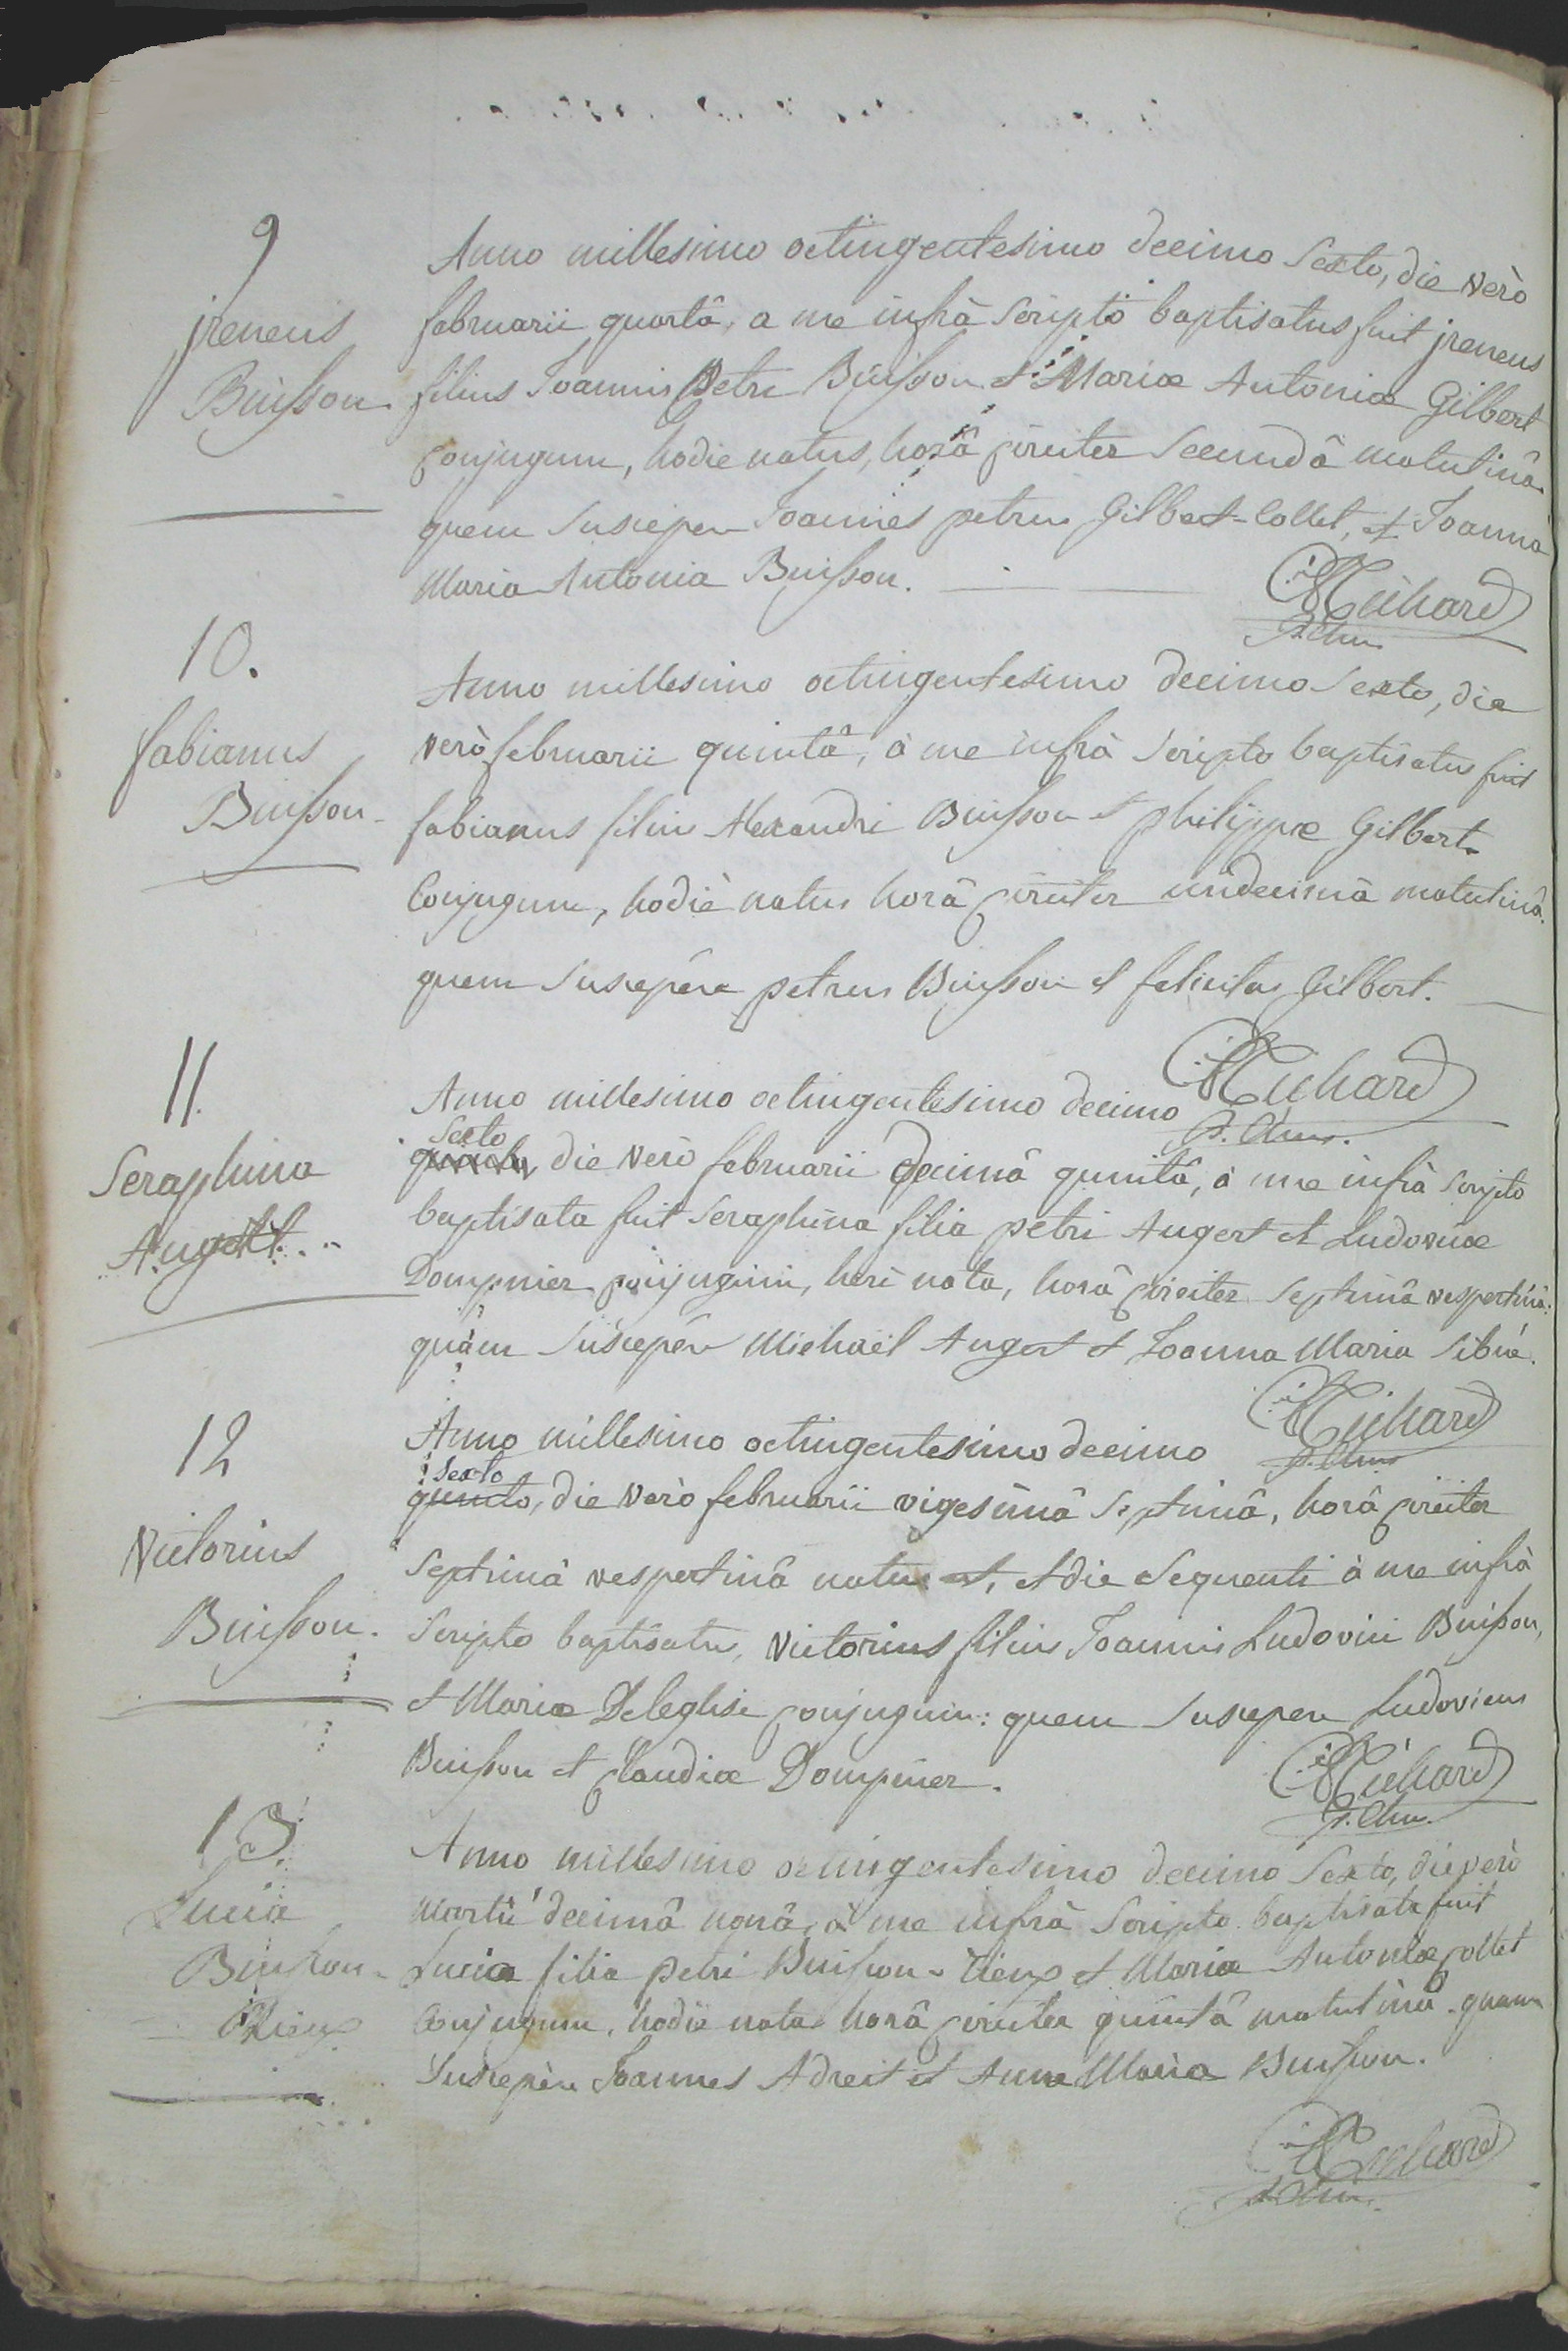 9
jreneus
Buisson.
Anno millesimo octingentesimo decimo Sexto, die verò
februarii quartâ, a me infrà Scripto baptisatus fuit jreneus
filius Joannis Petri Buisson et Mariæ Antoniæ Gilbert
conjugum, hodie natus, horâ circiter Secundâ matutinâ.
quem Suscepere Joannes petrus Gilbert-Collet, et Joanna
Maria Antonia Buisson.
Richard
10.
fabianus
Buisson.
Anno millesimo octingentesimo decimo Sexto, die
verò februarii quintâ, à me infrà Scripto baptisatus fuit
fabianus filius Alexandri Buisson et philippæ Gilbert.
Conjugum, hodiè natus horâ circiter undecimâ matutinâ.
quem Suscepêre petrus Buisson et felicitas Gilbert.
Richard
11.
Seraphina
Augert.
Anno millesimo octingentesimo decimo
Sexto
die verò februarii decimâ quintâ, à me infrà Scripto
baptisata fuit Seraphina filia petri Augert et Ludovicæ
Dompnier conjugum, heri nata, horâ circiter Septimâ vespertinâ:
quam Suscepêre Michaël Augert et Joanna Maria Sibué.
Richard
12
Victorius
Buisson.
Anno millesimo octingentesimo decimo
Sexto
quinto, die verò februarii vigesimâ Septimâ, horâ circiter
Septimâ vespertinâ natus est, et die Sequenti à me infrà
Scripto baptisatus, Victorius filius Joannis Ludovici Buisson,
et Mariæ Deleglise conjugum: quem Suscepere Ludovicus
Buisson et Claudiæ Dompnier.
Richard
13
Lucia
Buisson-
Tieux
Anno millesimo octingentesimo decimo Sexto, die verò
Martii decimâ nonâ, à me infrà Scripto baptisata fuit
Lucia filia petri Buisson-Tieux et Mariæ Antoniæ Collet
Conjugum, hodie nata horâ circiter quintâ matutinâ. quam
Suscepère Joannes Adreit et Anna Maria Buisson.
Richard